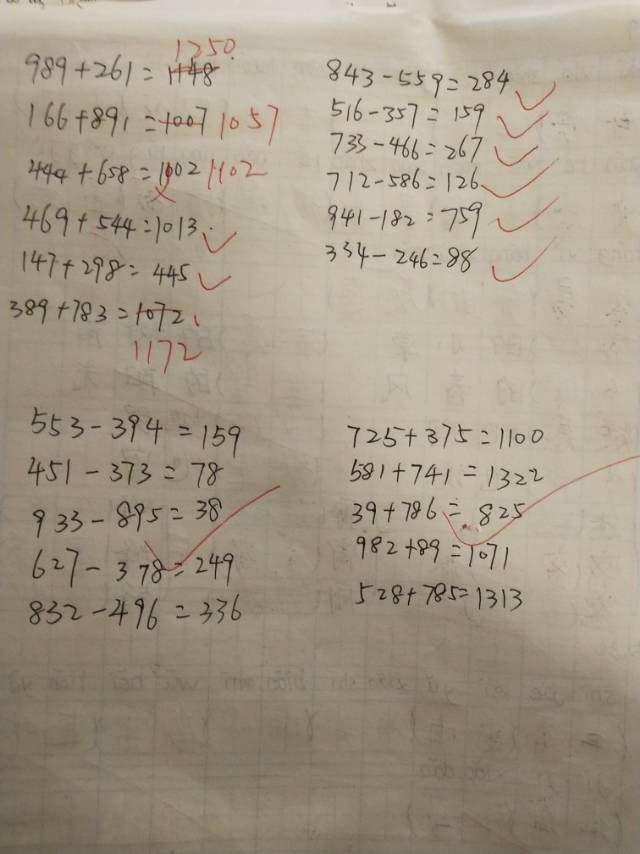 1250
989+261=1148
166+891=1007 1057
444+658=1002 1102
469+544=1013
147+298=445
389+783=1072
1172
843-559=284
516-357=159
733-466=267
712-586=126
941-182=759
334-246=88
553-394=159
451-373=78
933-895=38
627-378=249
832-496=336
725+375=1100
581+741=1322
39+786=825
982+89=1071
528+785=1313